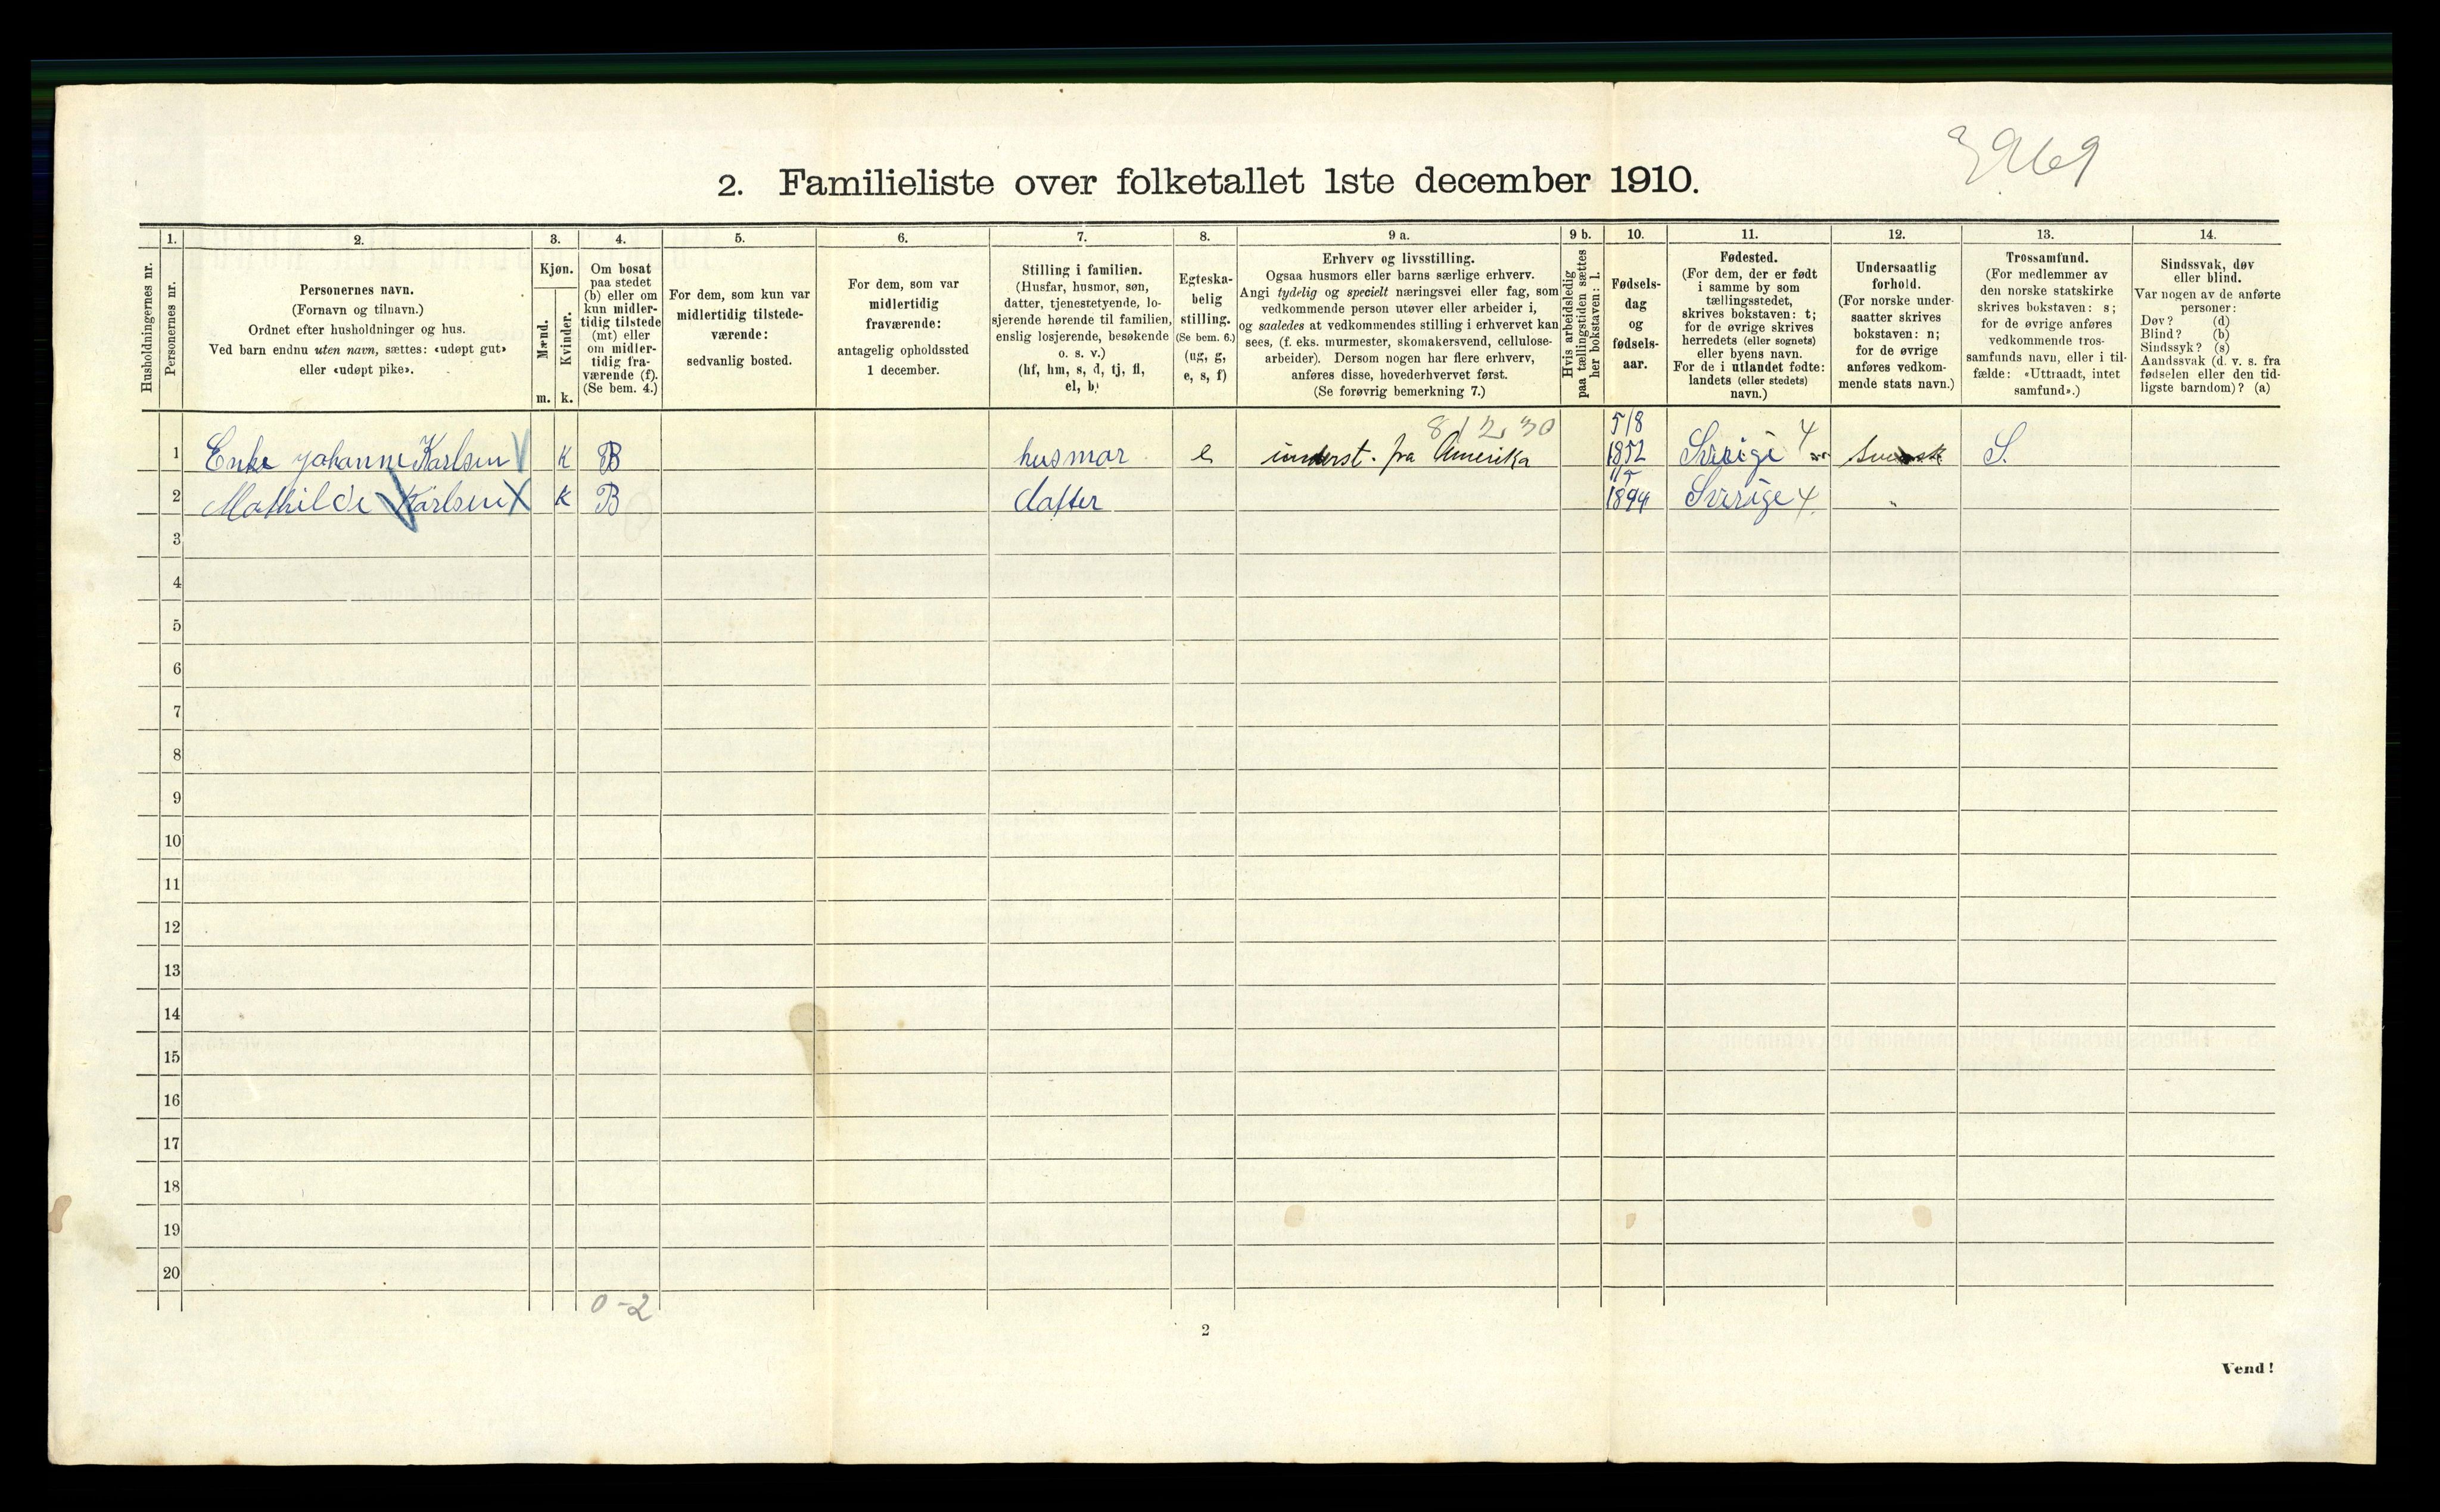 3969
2. Familieliste over folketallet 1ste december 1910.
Husholdningernes nr.
1.
Personernes nr.
2.
Personernes navn.
(Fornavn og tilnavn.)
Ordnet efter husholdninger og hus.
Ved barn endnu uten navn, sættes: «udøpt gut»
eller «udøpt pike».
3.
Kjøn.
Mænd.
Kvinder.
m. k.
4.
Om bosat
paa stedet
(b) eller om
kun midler-
tidig tilstede
(mt) eller
om midler-
tidig fra-
værende (f).
(Se bem. 4.)
5.
For dem, som kun var
midlertidig tilstede-
værende:
sedvanlig bosted.
6.
For dem, som var
midlertidig
fraværende:
antagelig opholdssted
1 december.
7.
Stilling i familien.
(Husfar, husmor, søn,
datter, tjenestetyende, lo-
sjerende hørende til familien,
enslig losjerende, besøkende
o. s. v.)
(hf, hm, s, d, tj, fl,
el, b)
8.
Egteska-
belig
stilling.
(Se bem. 6.)
(ug, g,
e, s, f)
9 a.
Erhverv og livsstilling.
Ogsaa husmors eller barns særlige erhverv.
Angi tydelig og specielt næringsvei eller fag, som
vedkommende person utøver eller arbeider i,
og saaledes at vedkommendes stilling i erhvervet kan
sees, (f. eks. murmester, skomakersvend, cellulose-
arbeider). Dersom nogen har flere erhverv,
anføres disse, hovederhvervet først.
(Se forøvrig bemerkning 7.)
9 b.
Hvis arbeidsledig
paa tællingstiden sættes
her bokstaven: l.
10.
Fødsels-
dag
og
fødsels-
aar.
11.
Fødested.
(For dem, der er født
i samme by som
tællingsstedet,
skrives bokstaven: t;
for de øvrige skrives
herredets (eller sognets)
eller byens navn.
For de i utlandet fødte:
landets (eller stedets)
navn.)
12.
Undersaatlig
forhold.
(For norske under-
saatter skrives
bokstaven: n;
for de øvrige
anføres vedkom-
mende stats navn.)
13.
Trossamfund.
(For medlemmer av
den norske statskirke
skrives bokstaven: s;
for de øvrige anføres
vedkommende tros-
samfunds navn, eller i til-
fælde: «Uttraadt, intet
samfund».)
14.
Sindssvak, døv
eller blind.
Var nogen av de anførte
personer:
Døv? (d)
Blind? (b)
Sindssyk? (s)
Aandssvak (d. v. s. fra
fødselen eller den tid-
ligste barndom)? (a)
8 1 2, 30 5/8
1 Enke Johanne Karlsen K B husmor e underst. fra Amerika 1852 Sverige 4 Svensk S.
2 Mathilde Karlsen X K B datter 1894 Sverige 4 "
3
4
5
6
7
8
9
10
11
12
13
14
15
16
17
18
19
20
0-2
2
Vend!